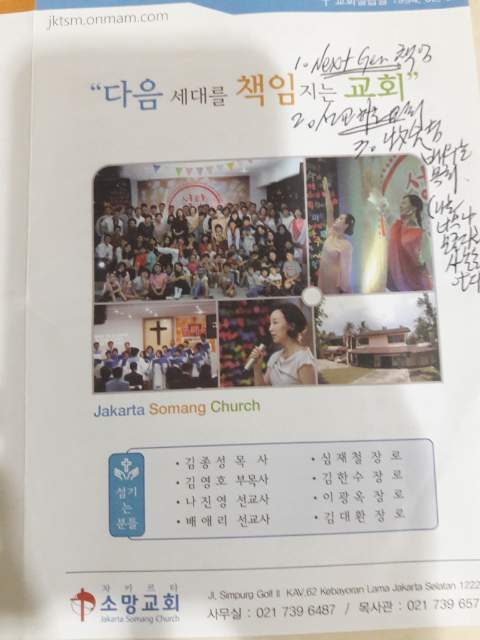 jktsm.onmam.com
1. Next Gen 책임
"다음 세대를 책임 지는 교회"
2.
3.
Jakarta Somang Church
섬기
는
분들
• 김종성 목 사
• 김영호 부목사
• 나진영 선교사
• 배애리 선교사
• 심재철 장 로
• 김한수 장 로
• 이광옥 장 로
• 김대환 장 로
자 카 르 타
소망교회
Jakarta Somang Church
Jl, Simpurg Golf II KAV,62 Kebayoran Lama Jakarta Selatan 1222
사무실 : 021 739 6487 / 목사관 : 021 739 657